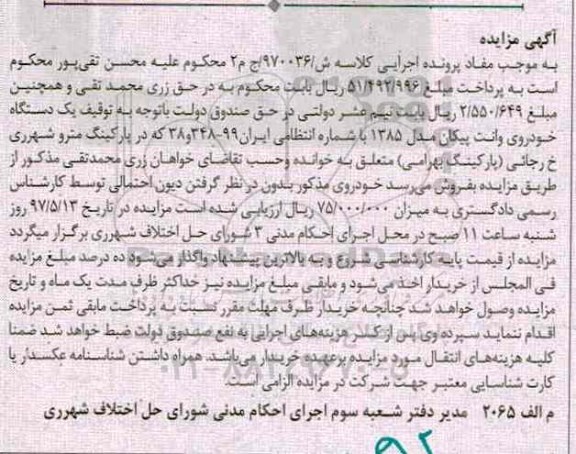 آگهی مزایده
به موجب مفاد پرونده اجرایی کلاسه ش/۹۷۰۰۳۶/ج م۲ محکوم علیه محسن تقی‌پور محکوم
است به پرداخت مبلغ ۵۱/۴۹۲/۹۹۶ ریال بابت محکوم به در حق زری محمد تقی و همچنین
مبلغ ۲/۵۵۰/۶۴۹ ریال بابت نیم عشر دولتی در حق صندوق دولت باتوجه به توقیف یک دستگاه
خودروی وانت پیکان مدل ۱۳۸۵ با شماره انتظامی ایران۹۹-۳۴۸و۳۸ که در پارکینگ مترو شهرری
خ رجائی (پارکینگ بهرامی) متعلق به خوانده وحسب تقاضای خواهان زری محمدتقی مذکور از
طریق مزایده بفروش می‌رسد خودروی مذکور بدون در نظر گرفتن دیون احتمالی توسط کارشناس
رسمی دادگستری به میزان ۷۵/۰۰۰/۰۰۰ ریال ارزیابی شده است مزایده در تاریخ ۹۷/۵/۱۳ روز
شنبه ساعت ۱۱ صبح در محل اجرای احکام مدنی ۳ شورای حل اختلاف شهرری برگزار میگردد
مزایده از قیمت پایه کارشناسی شروع و به بالاترین پیشنهاد واگذار می‌شود ده درصد مبلغ مزایده
فی المجلس از خریدار اخذ می‌شود و مابقی مبلغ مزایده نیز حداکثر ظرف مدت یک ماه و تاریخ
مزایده وصول خواهد شد چنانچه خریدار ظرف مهلت مقرر نسبت به پرداخت مابقی ثمن مزایده
اقدام ننماید سپرده وی پس از کسر هزینه‌های اجرایی به نفع صندوق دولت ضبط خواهد شد ضمنا
کلیه هزینه‌های انتقال مورد مزایده برعهده خریدار می‌باشد. همراه داشتن شناسنامه عکسدار یا
کارت شناسایی معتبر جهت شرکت در مزایده الزامی است.
م الف ۲۰۶۵ مدیر دفتر شعبه سوم اجرای احکام مدنی شورای حل اختلاف شهرری
۹۲